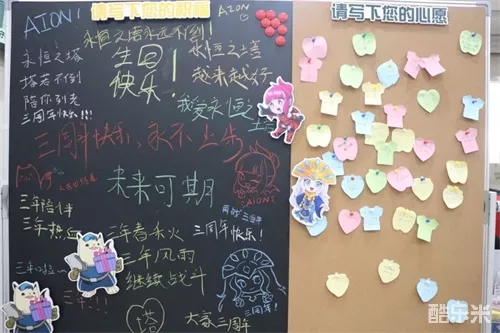 请写下您的祝福
请写下您的心愿
AION!
AION
永恒之塔永远不倒!
永恒之塔
塔若不倒
陪你到老
三周年快乐!!!
生日
快乐!
永恒之塔
越来越好
我爱永恒之塔
三周年快乐,永不止步
AION
未来可期
三年陪伴
三年热血
三年
三年风雨
继续战斗
三周年快乐!
塔
大家三周年
三周年
酷乐米